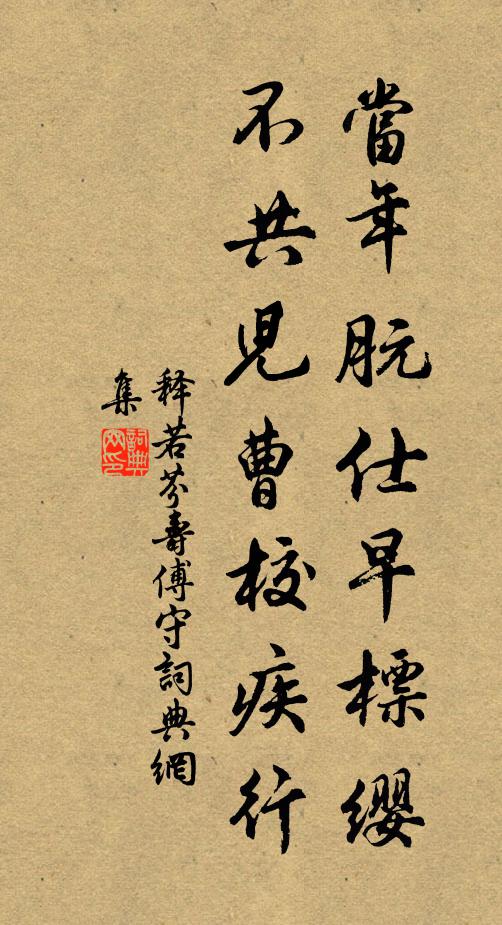 當年朊仕早標纓
不共兒曹校疾行
釋若芬壽傅守詞典網
集
詞典網印